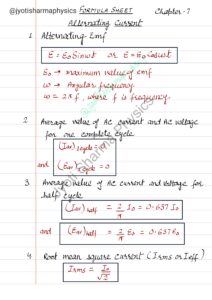 @jyotisharmaphysics FORMULA SHEET Chapter-7
Alternating Current
1 Alternating Emf
E = E₀ Sinωt or E = E₀ cosωt
E₀ → maximum value of emf
ω → Angular frequency
ω = 2πf, where f is frequency.
2 Average value of AC current and AC voltage
for one complete cycle
(Iav)cycle = 0
and (Eav)cycle = 0
3. Average value of AC current and voltage for
half cycle
(Iav)half = 2/π I₀ = 0.637 I₀
and (Eav)half = 2/π E₀ = 0.637 E₀
4 Root mean square current (Irms or Ieff)
Irms = I₀/√2